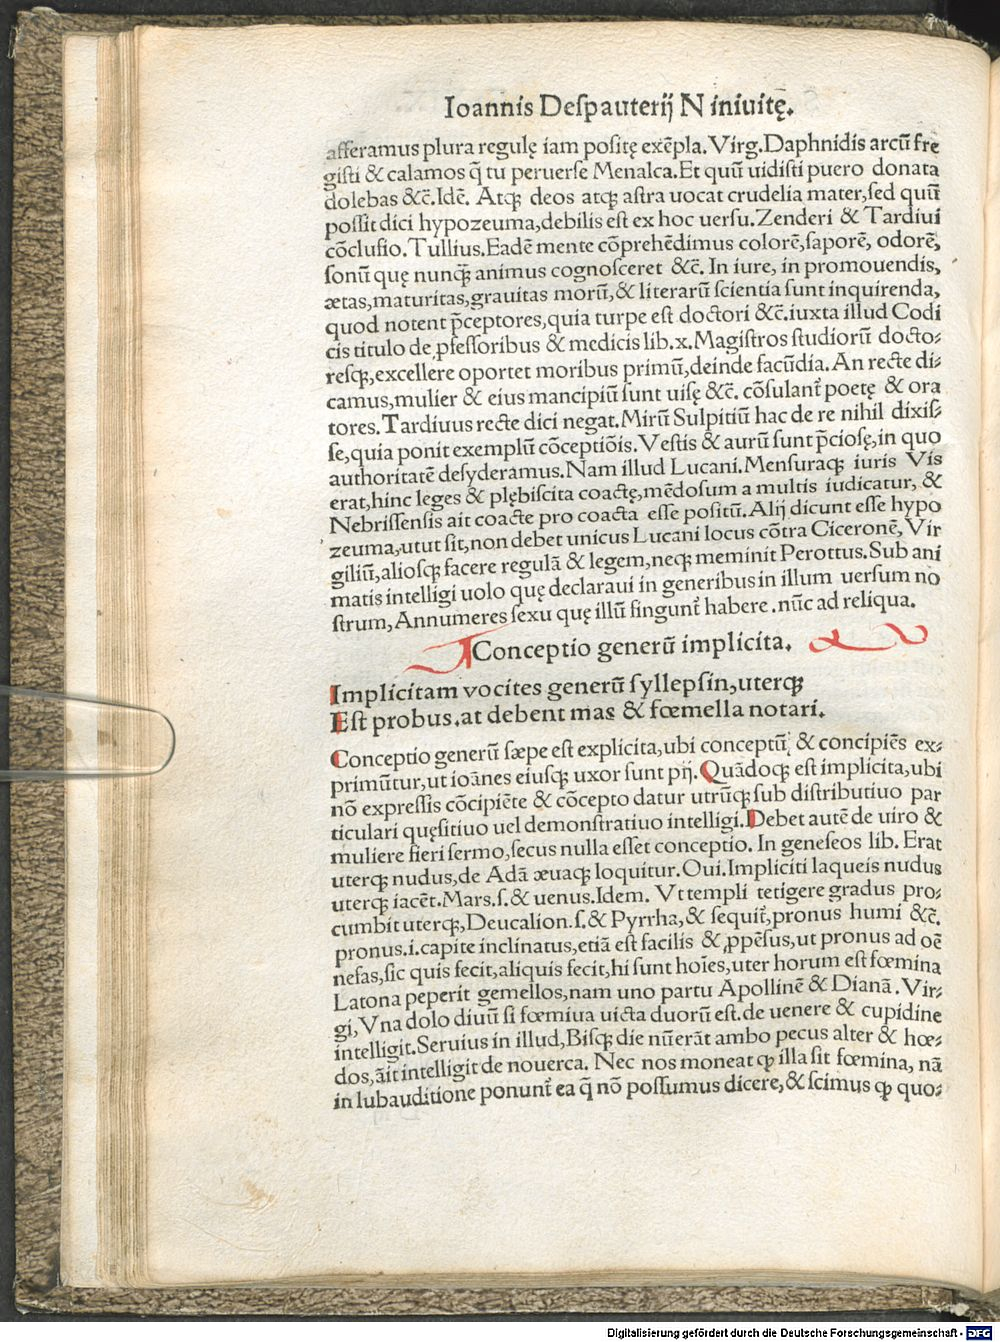 Ioannis Despauterij Niniuitę.
afferamus plura regulę iam positę exẽpla. Virg. Daphnidis arcũ fre
gisti & calamos q̃ tu peruerse Menalca. Et quũ uidisti puero donata
dolebas &c̃. Idẽ. Atqꝫ deos atqꝫ astra uocat crudelia mater, sed quũ
possit dici hypozeuma, debilis est ex hoc uersu. Zenderi & Tardiui
cõclusio. Tullius. Eadẽ mente cõprehẽdimus colorẽ, saporẽ, odorẽ,
sonũ quę nunqꝫ̃ animus cognosceret &c̃. In iure, in promouendis,
ætas, maturitas, grauitas morũ, & literarũ scientia sunt inquirenda,
quod notent p̃ceptores, quia turpe est doctori &c̃. iuxta illud Codi
cis titulo de ꝓfessoribus & medicis lib. x. Magistros studiorũ docto⸗
resqꝫ, excellere oportet moribus primũ, deinde facũdia. An recte di⸗
camus, mulier & eius mancipiũ sunt uisę &c̃. cõsulant᷑ poetę & ora
tores. Tardiuus recte dici negat. Mirũ Sulpitiũ hac de re nihil dixis⸗
se, quia ponit exemplũ cõceptiõis. Vestis & aurũ sunt p̃ciosę, in quo
authoritatẽ desyderamus. Nam illud Lucani. Mensuraqꝫ iuris Vis
erat, hinc leges & plębiscita coactę, mẽdosum a multis iudicatur, &
Nebrissensis ait coacte pro coacta esse positũ. Alij dicunt esse hypo
zeuma, utut sit, non debet unicus Lucani locus cõtra Ciceronẽ, Vir
giliũ, aliosqꝫ facere regulã & legem, neqꝫ meminit Perottus. Sub ani
matis intelligi uolo quę declaraui in generibus in illum uersum no
strum, Annumeres sexu quę illũ fingunt᷑ habere. nũc ad reliqua.
Conceptio generũ implicita.
Implicitam vocites generũ syllepsin, uterqꝫ
Est probus. at debent mas & fœmella notari.
Conceptio generũ sæpe est explicita, ubi conceptũ, & concipiẽs ex⸗
primũtur, ut ioãnes eiusqꝫ uxor sunt pij. Quãdoqꝫ est implicita, ubi
nõ expressis cõcipiẽte & cõcepto datur utrũqꝫ sub distributiuo par
ticulari quęsitiuo uel demonstratiuo intelligi. Debet autẽ de uiro &
muliere fieri sermo, secus nulla esset conceptio. In geneseos lib. Erat
uterqꝫ nudus, de Adã æuaqꝫ loquitur. Oui. Impliciti laqueis nudus
uterqꝫ iacẽt. Mars. s. & uenus. Idem. Vt templi tetigere gradus pro⸗
cumbit uterqꝫ, Deucalion. s. & Pyrrha, & sequit᷑, pronus humi &c̃.
pronus. i. capite inclinatus, etiã est facilis & ꝓpẽsus, ut pronus ad oẽ
nefas, sic quis fecit, aliquis fecit, hi sunt hoĩes, uter horum est fœmina
Latona peperit gemellos, nam uno partu Apollinẽ & Dianã. Vir⸗
gi, Vna dolo diuũ si fœmiua uicta duorũ est. de uenere & cupidine
intelligit. Seruius in illud, Bisqꝫ die nũerãt ambo pecus alter & hœ⸗
dos, ãit intelligit de nouerca. Nec nos moneat ꝙ illa sit fœmina, nã
in lubauditione ponunt᷑ ea q̃ nõ possumus dicere, & scimus ꝙ quo⸗
Digitalisierung gefördert durch die Deutsche Forschungsgemeinschaft - DFG